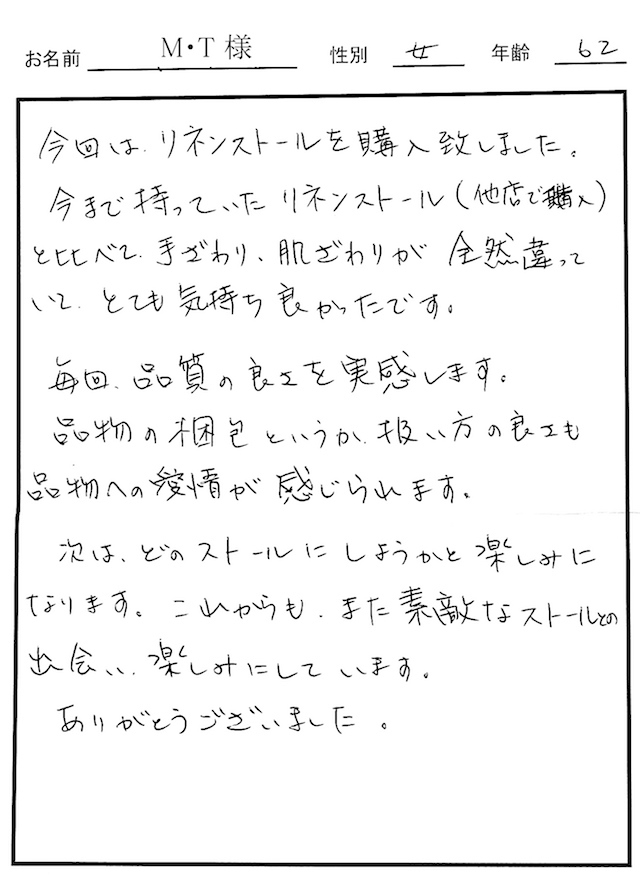 お名前 M・T様 性別 女 年齢 62
今回は、リネンストールを購入致しました。
今まで持っていたリネンストール(他店で購入)
と比べて、手ざわり、肌ざわりが 全然違って
いて、とても気持ち良かったです。
毎回、品質の良さを実感します。
品物の梱包というか、扱い方の良さも
品物への愛情が感じられます。
次は、どのストールにしようかと楽しみに
なります。これからも、また素敵なストールとの
出会い、楽しみにしています。
ありがとうございました。